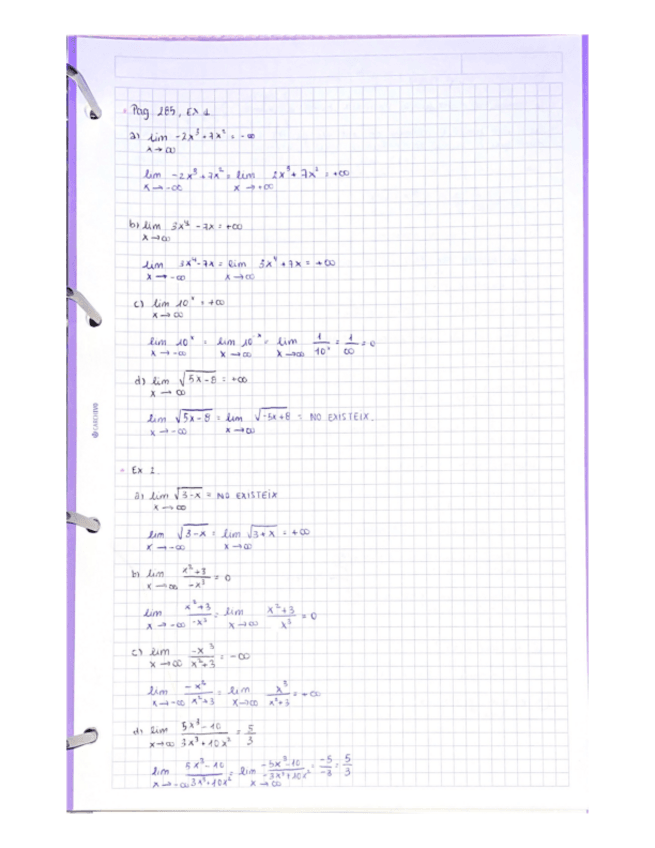 Pag 285, EX 1
a) lim -2x³+7x² = -∞
x→∞
lim -2x³+7x² = lim 2x³+7x² = +∞
x→-∞ x→+∞
b) lim 3x⁴-7x = +∞
x→∞
lim 3x⁴-7x = lim 3x⁴+7x = +∞
x→-∞ x→∞
c) lim 10ˣ = +∞
x→∞
lim 10ˣ = lim 10⁻ˣ = lim 1/10ˣ = 1/∞ = 0
x→-∞ x→∞ x→∞
d) lim √5x-8 = +∞
x→∞
lim √5x-8 = lim √-5x+8 = NO EXISTEIX.
x→-∞ x→∞
Ex 2.
a) lim √3-x = NO EXISTEIX
x→∞
lim √3-x = lim √3+x = +∞
x→-∞ x→∞
b) lim x²+3/-x³ = 0
x→∞
lim x²+3/-x³ = lim x²+3/x³ = 0
x→-∞ x→∞
c) lim -x³/x²+3 = -∞
x→∞
lim /x²+3 = lim x³/x²+3 = +∞
x→-∞ x→∞
d) lim 5x³-10/3x³+10x² = 5/3
x→∞
lim 5x³-10/3x³+10x² = lim -5x³-10/-3x³+10x² = -5/-3 = 5/3
x→-∞ x→∞